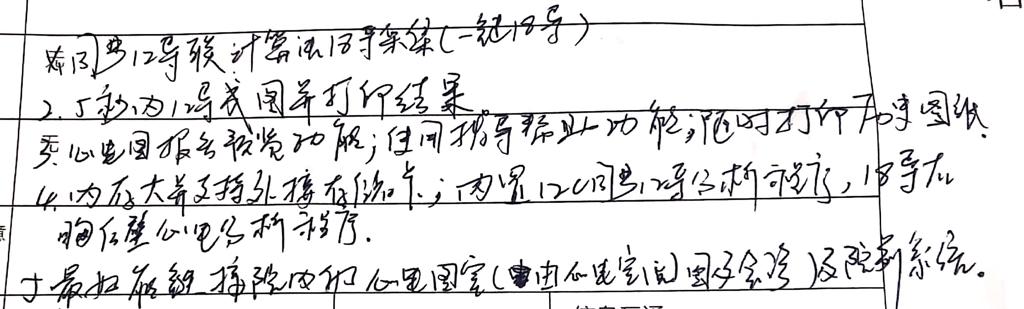 同步12导联计算法18导采集(一键18导)
2.5秒内12导成图并打印结果
心电图报告预览功能;使用指导帮助功能;随时打印历史图纸.
4.内存大并支持外接存储卡;内置12同步12导分析程序,18导右
胸后壁心电分析程序.
5最好能链接院内和心电图室(由心电室阅图及会诊)及院新系统。